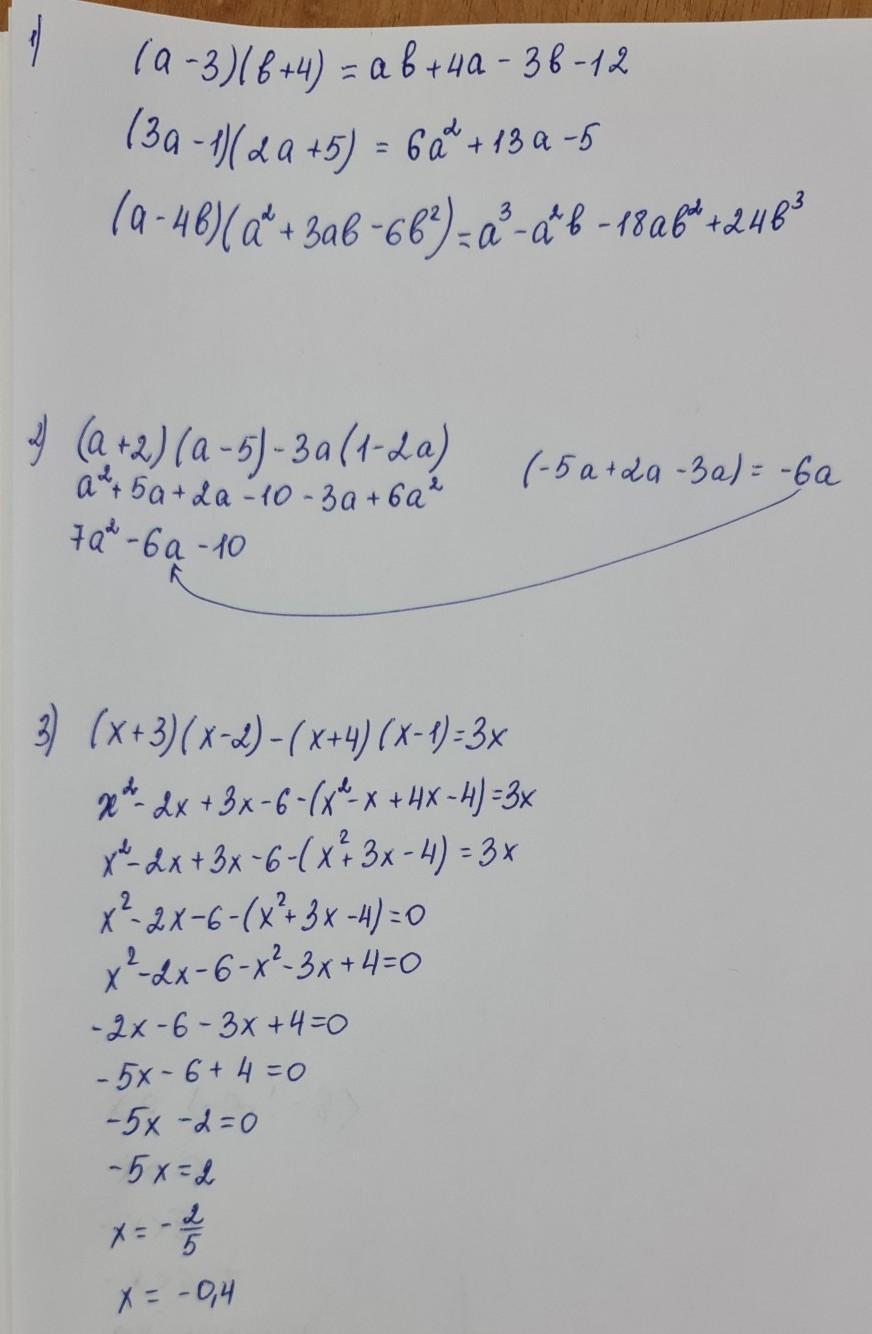 1) (a - 3)(b + 4) = ab + 4a - 3b - 12
(3a - 1)(2a + 5) = 6a² + 13a - 5
(a - 4b)(a² + 3ab - 6b²) = a³ - a²b - 18ab² + 24b³
2) (a + 2)(a - 5) - 3a(1 - 2a)
a² + 5a + 2a - 10 - 3a + 6a²
(-5a + 2a - 3a) = -6a
7a² - 6a - 10
3) (x + 3)(x - 2) - (x + 4)(x - 1) = 3x
x² - 2x + 3x - 6 - (x² - x + 4x - 4) = 3x
x² - 2x + 3x - 6 - (x² + 3x - 4) = 3x
x² - 2x - 6 - (x² + 3x - 4) = 0
x² - 2x - 6 - x² - 3x + 4 = 0
-2x - 6 - 3x + 4 = 0
-5x - 6 + 4 = 0
-5x - 2 = 0
-5x = 2
x = -2/5
x = -0,4